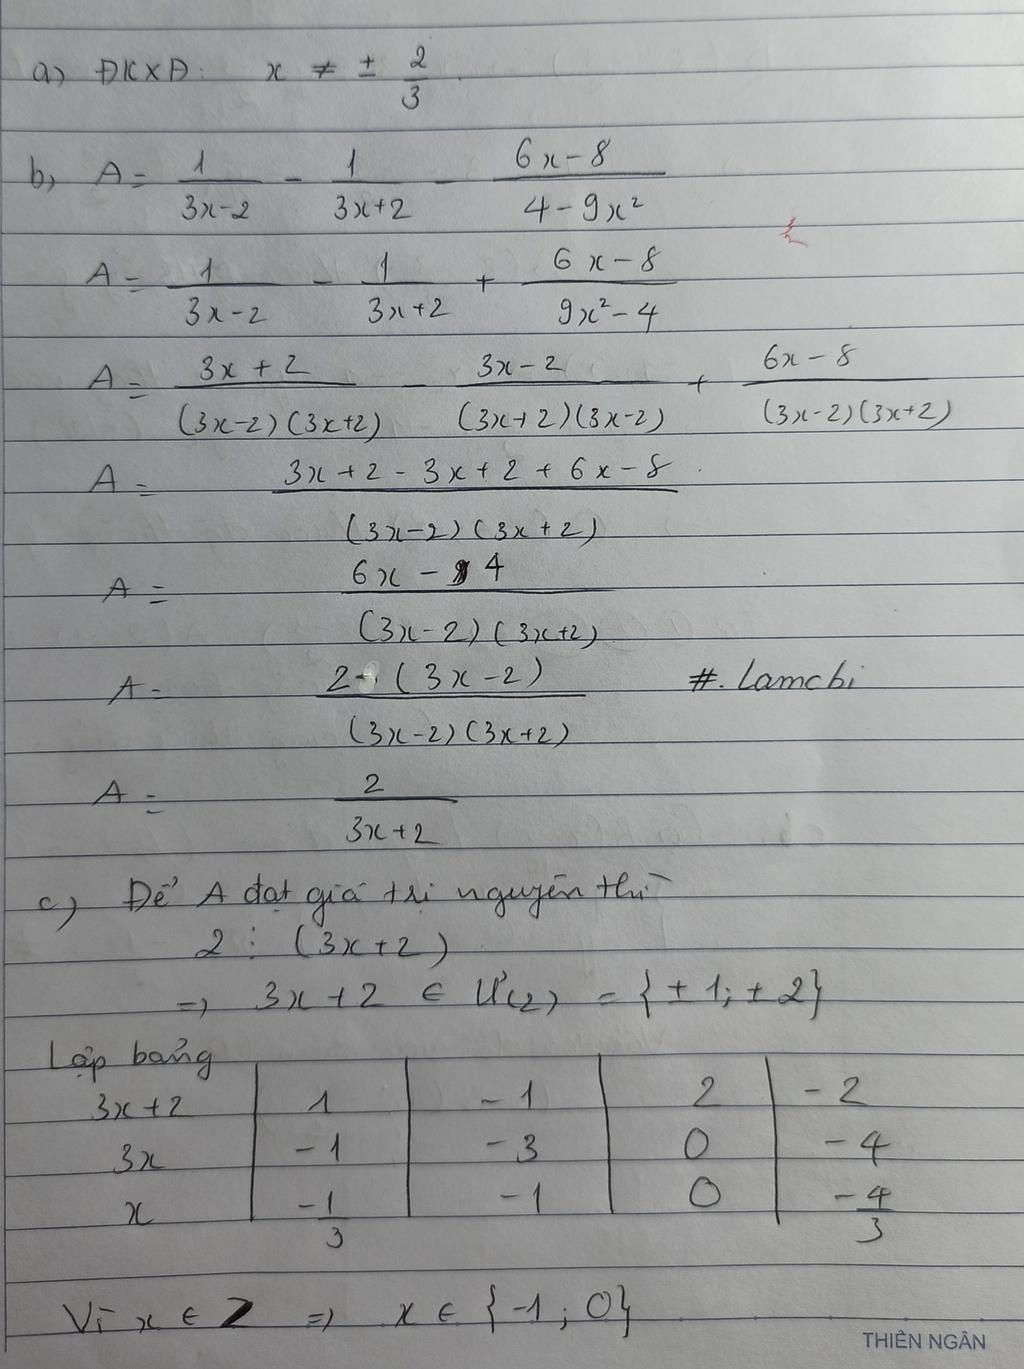 a) ĐKXĐ: x ≠ ± 2/3
b) A = 1/(3x-2) - 1/(3x+2) - (6x-8)/(4-9x²)
A = 1/(3x-2) - 1/(3x+2) + (6x-8)/(9x²-4)
A = (3x+2)/((3x-2)(3x+2)) - (3x-2)/((3x+2)(3x-2)) + (6x-8)/((3x-2)(3x+2))
A = (3x+2-3x+2+6x-8)/((3x-2)(3x+2))
A = (6x-4)/((3x-2)(3x+2))
A = 2(3x-2)/((3x-2)(3x+2)) #.lamchi
A = 2/(3x+2)
c) Để A đạt giá trị nguyên thì
2 ⋮ (3x+2)
=> 3x+2 ∈ Ư(2) = {±1; ±2}
Lập bảng
3x+2 | 1 | -1 | 2 | -2
3x | -1 | -3 | 0 | -4
x | -1/3 | -1 | 0 | -4/3
Vì x ∈ Z => x ∈ {-1; 0}
THIÊN NGÂN